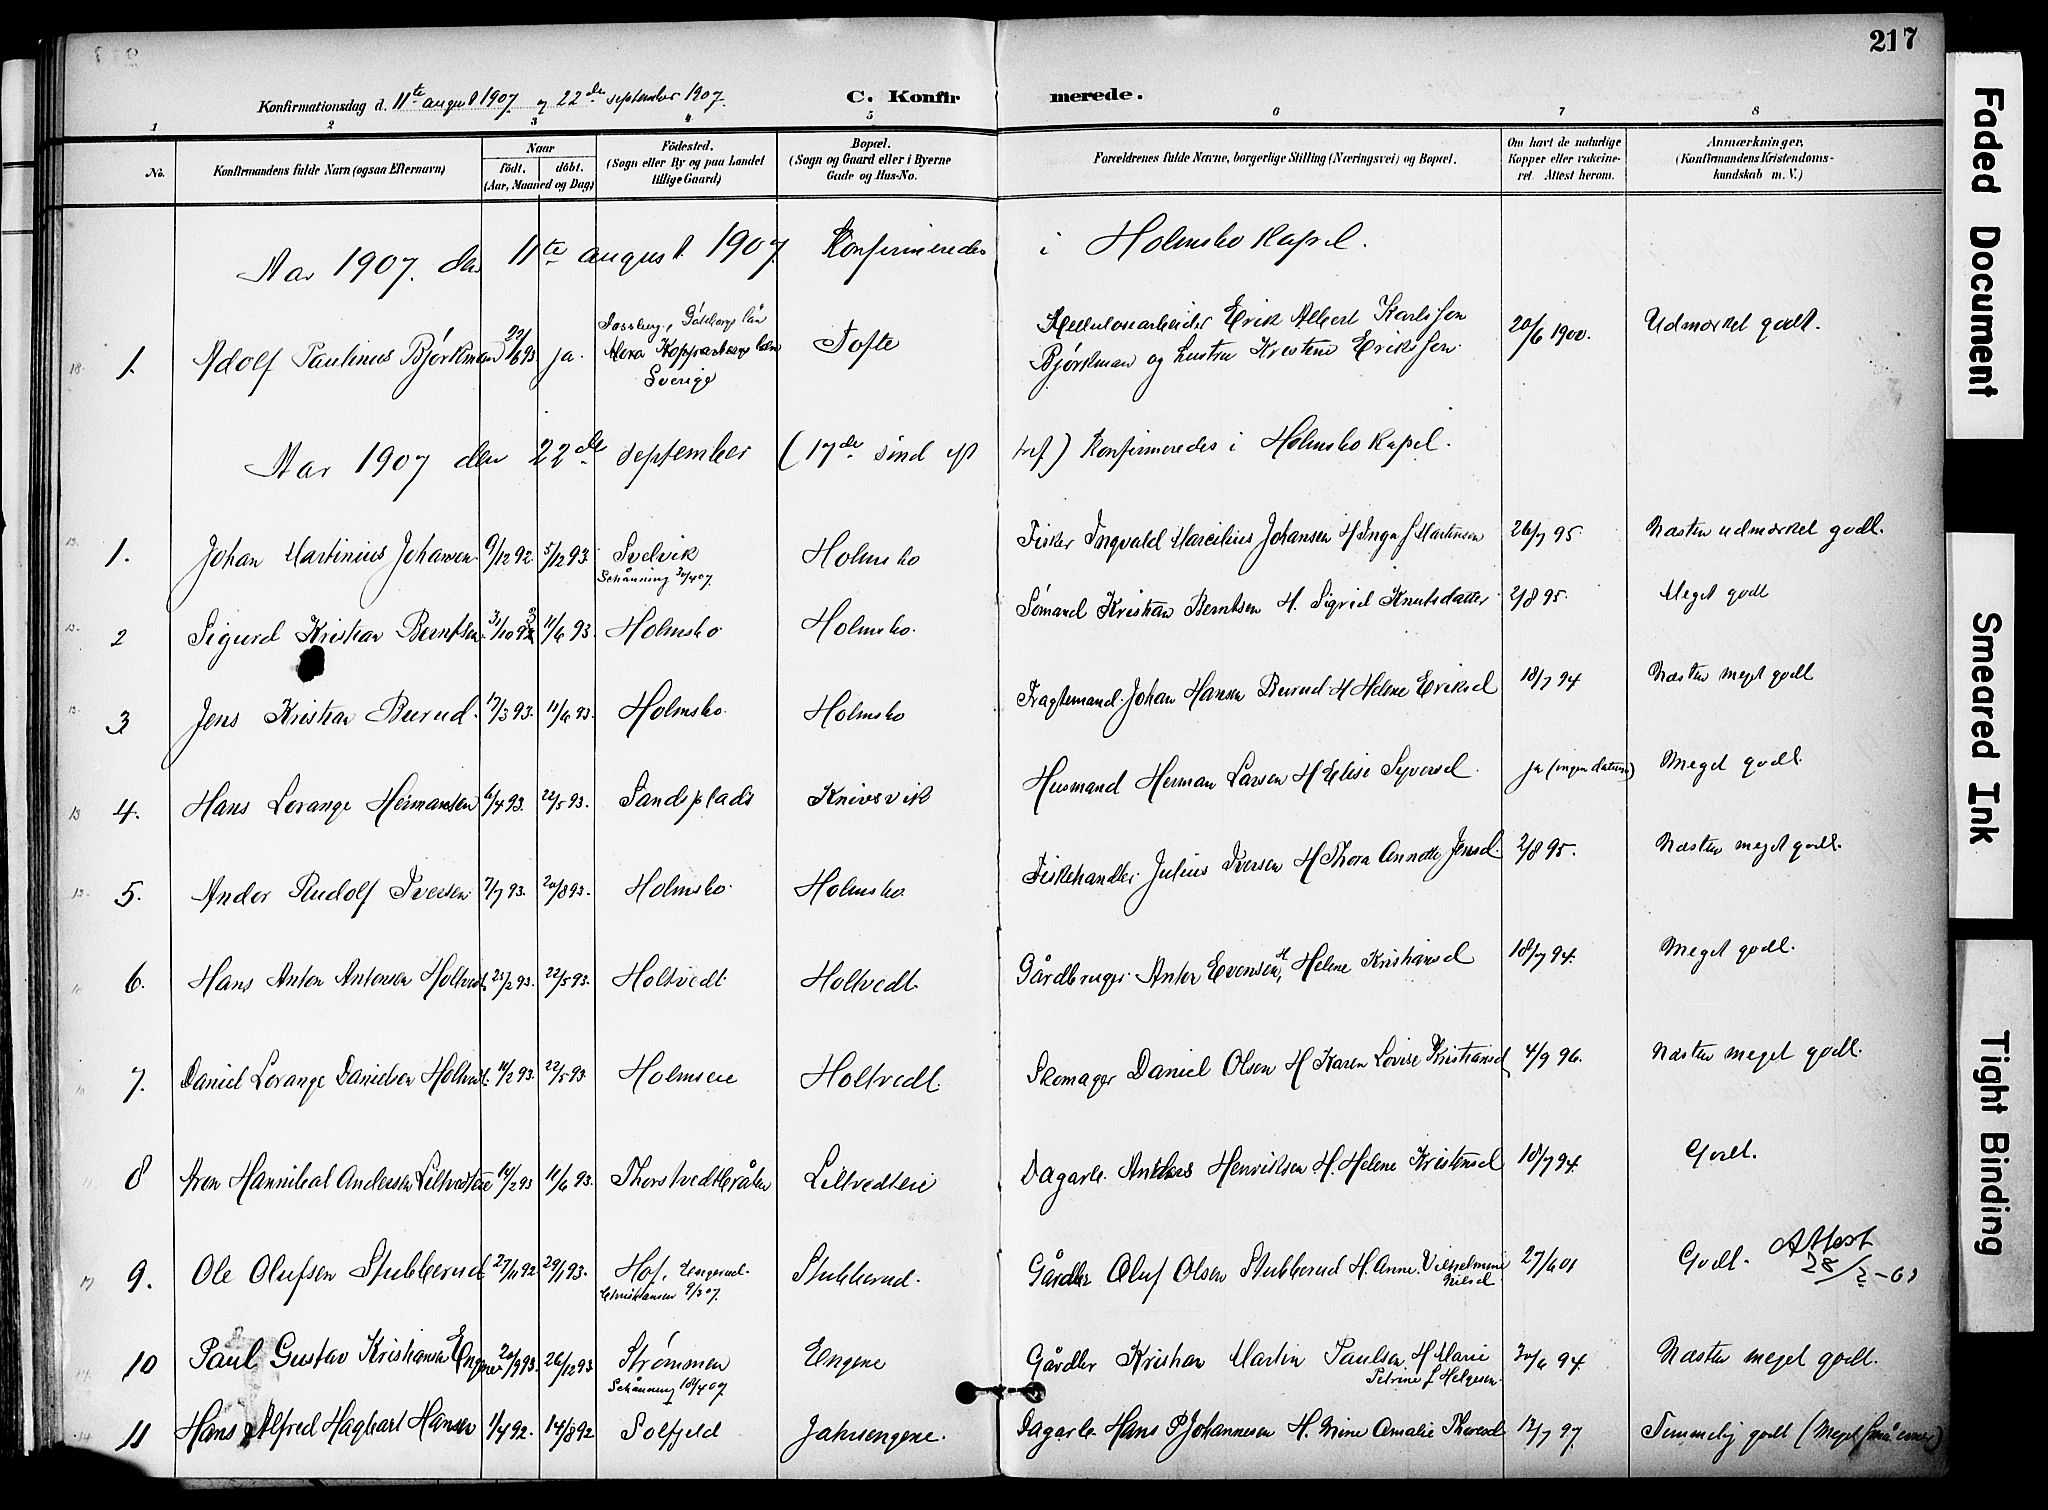 217
Konfirmationsdag d. 11te august 1907 og 22de september 1907. C. Konfirmerede.
1 2 3 4 5 6 7 8
No. Konfirmandens fulde Navn (ogsaa Efternavn) Naar født. døbt. (Aar, Maaned og Dag) Födested. (Sogn eller By og paa Landet tillige Gaard) Bopæl. (Sogn og Gaard eller i Byerne Gade og Hus-No. Forældrenes fulde Navne, borgerlige Stilling (Næringsvei) og Bopæl. Om havt de naturlige Kopper eller vaccineret. Attest herom. Anmærkninger, (Konfirmandens Kristendomskundskab m. V.)
Aar 1907. den 11te august. 1907. Konfirmeredes i Holmsbo Kapel.
1. Adolf Paulinus Björkman 22/6 93 ja. Mora Kopparbergs län Sverige Tofte Cellulosearbeider Erik Albert Karlsson Björkman og hustru Kristine Eriksson. 20/6 1900. Udmærket godt.
Aar 1907 den 22de september (17de sønd eft tref) Konfirmeredes i Holmsbo Kapel.
1. Johan Martinius Johansen 9/12 92. 5/12 93. Svelvik Schänning 30/4 07. Holmsbo Fisker Ingvald Marcilius Johansen H Inga f Martinsen 26/7 95. Næsten udmærket godt.
2 Sigurd Kristian Berntsen. 31/10 92 11/6 93. Holmsbo Holmsbo. Sömand Kristian Berntsen H. Sigrid Knutsdatter 2/8 95. Meget godt
3 Jens Kristian Burud. 17/3 93. 11/6 93. Holmsbo. Holmsbo Fragtemand. Johan Hansen Burud H Helene Eriksd 18/7 94 Næsten meget godt
4. Hans Lorange Hermansen 6/4 93. 22/5 93. Sandsplads Knivsvik Husmand Herman Larsen H Elise Syversd. ja (ingen datum) Meget godt.
5. Andor Rudolf Iversen 7/7 93. 20/8 93. Holmsbo. Holmsbo. Fiskehandler Julius Iversen H Thora Annette Jensd. 2/8 95. Næsten meget godt.
6. Hans Anton Antonsen Holtvedt 25/2 93. 22/5 93. Holtvedt Holtvedt. Gårdbruger. Anton Evensen, H Helene Kristiansd 18/7 94. Meget godt.
7. Daniel Lorange Danielsen Holtvedt. 11/2 93. 22/5 93. Holmseie Holtvedt. Skomager Daniel Olsen H Karen Lovise Kristiansd 4/9 96. Næsten meget godt.
8 Aron Hannibal Andersen Liltvedteie 14/2 93 11/6 93. Thorstvedtbråten Liltvedteie Dagarb. Anders Henriksen H. Helene Kristensd 18/7 94. Godt.
9. Ole Olufsen Stubberud 27/11 92. 29/1 93. Hof, Engerud. Christiansen 2/3 07. Stubberud. Gårdbr Oluf Olsen Stubberud H. Anne Vilhelmine Nilsd. 27/6 01 Godt. Attest 28/2-61
10 Paul Gustav Kristiansen Engene 20/9 93. 26/12 93. Strømmen Schänning 18/4 07. Engene Gårdbr Kristian Martin Paulsen. H Marie Petrine f Helgesen. 30/6 94. Næsten meget godt.
11 Hans Alfred Hagbart Hansen 1/4 92. 14/8 92 Solfjeld Jahrsengene. Dagarb. Hans P Johannesen H. Mine Amalie Thoresd 12/7 97. Temmelig godt (Meget små evner)
Faded Document
Smeared Ink
Tight Binding